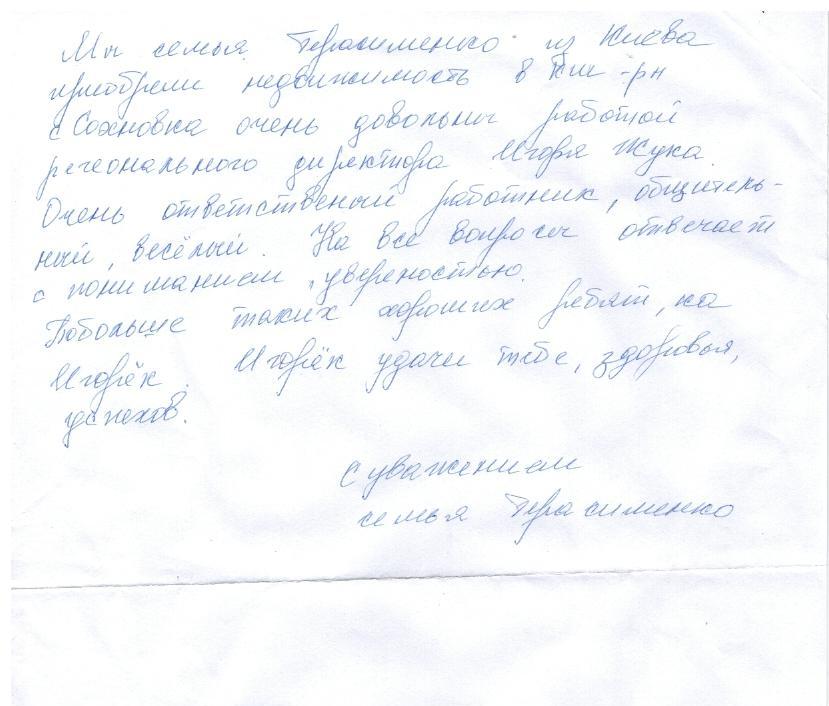 Мы семья Герасименко из Киева
приобрели недвижимость в Кии-рн
с Сохновка очень довольны работой
регеонального директора Игоря Жука.
Очень ответственый работник, общитель-
ный, весёлый. На все вопросы отвечает
с пониманием, увереностью.
Побольше таких хороших ребят, ка
Игорёк. Игорёк удачи тебе, здоровья,
успехов.
С уважением
семья Герасименко